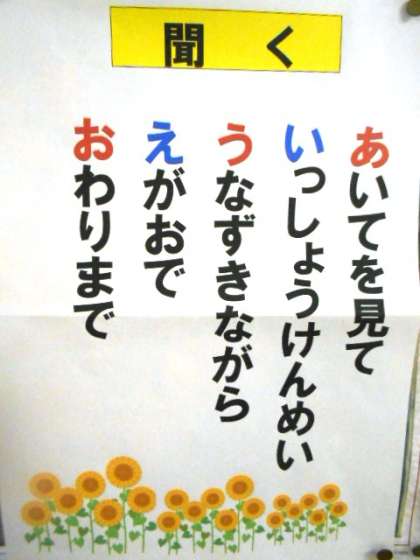 聞く
あいてを見て
いっしょうけんめい
うなずきながら
えがおで
おわりまで